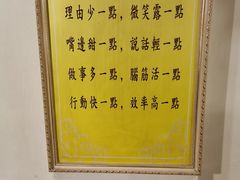 理由少一點，微笑露一點
嘴邊甜一點，說話輕一點
做事多一點，腦筋活一點
行動快一點，效率高一點